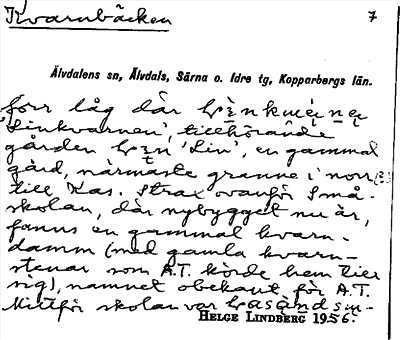 Kvarnbäcken 7
Älvdalens sn, Älvdals, Särna o. Idre tg, Kopparbergs län.
förr låg där
'Linkvarnen', tillhörande
gården 'Lin', en gammal
gård, närmaste granne i norr
till Kas. Strax ovanför Små-
skolan, där nybygget nu är,
fanns en gammal kvarn-
damm (med gamla kvarn-
stenar som A.T. körde hem till
sig), namnet obekant för A.T.
Mittför skolan var
HELGE LINDBERG 1956.